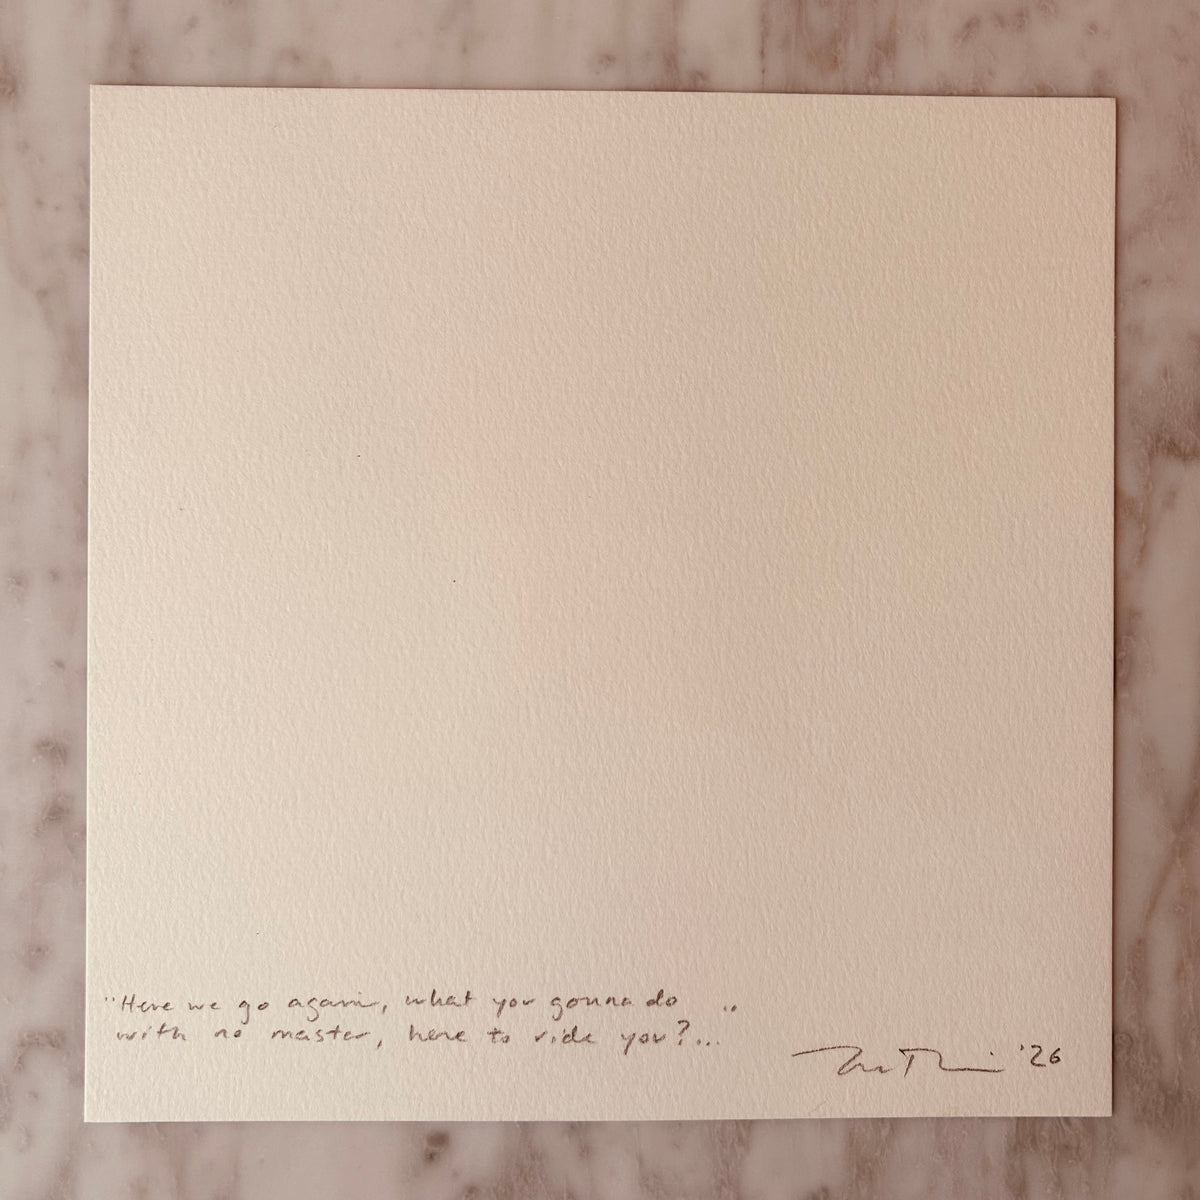 "Here we go again, what you gonna do
with no master, here to ride you?..."
'26